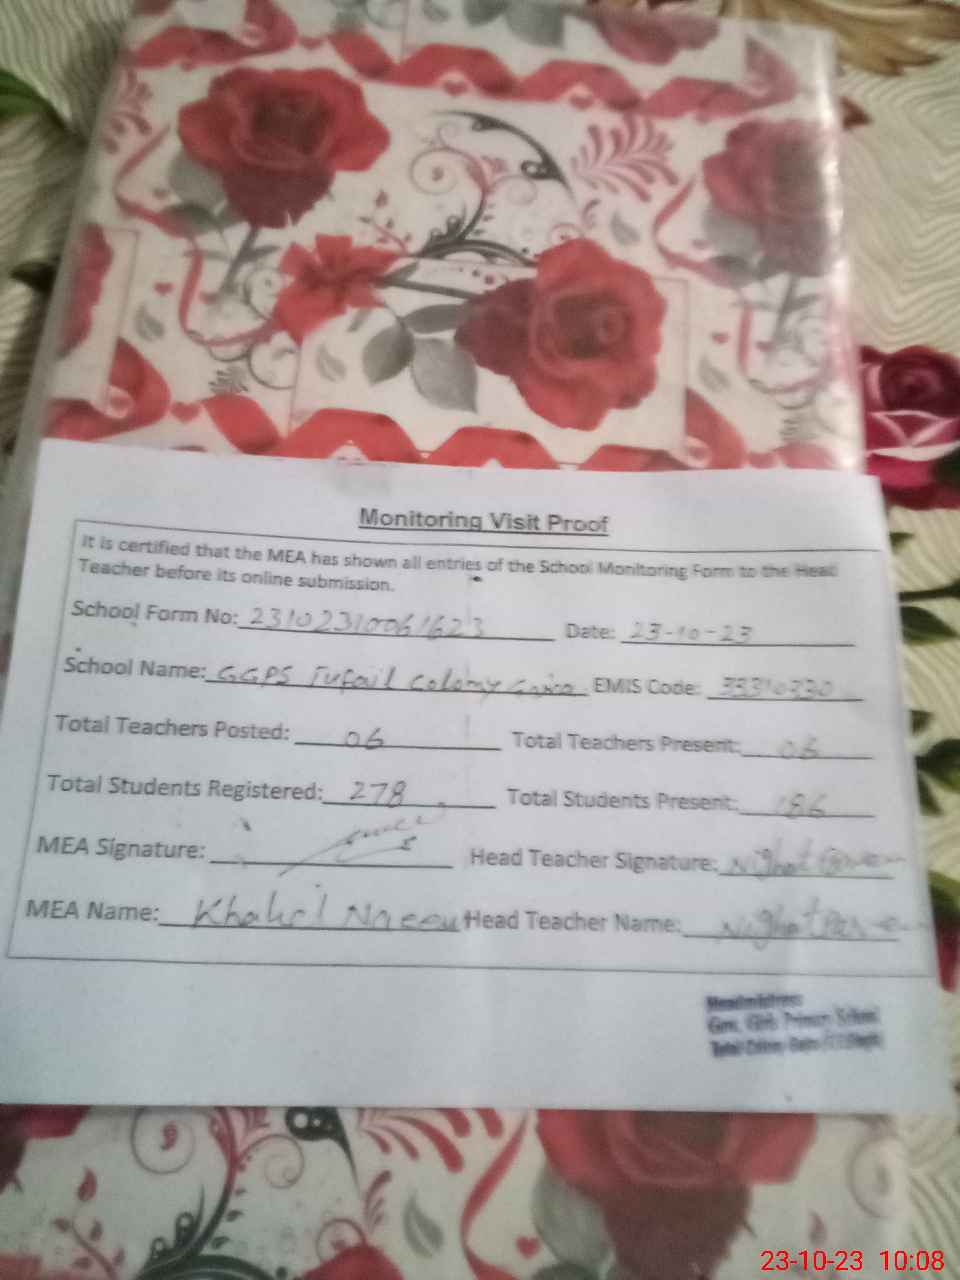 Monitoring Visit Proof
It is certified that the MEA has shown all entries of the School Monitoring Form to the Head
Teacher before its online submission.
School Form No: 23102310061623 Date: 23-10-23
School Name: GGPS Tufail Colony EMIS Code: 33310330
Total Teachers Posted: 06 Total Teachers Present: 06
Total Students Registered: 278 Total Students Present: 186
MEA Signature: Head Teacher Signature: Nighat Parveen
MEA Name: Khalid Naeem Head Teacher Name: Nighat Parveen
Headmistress
Govt. Girls Primary School
Colony
23-10-23 10:08